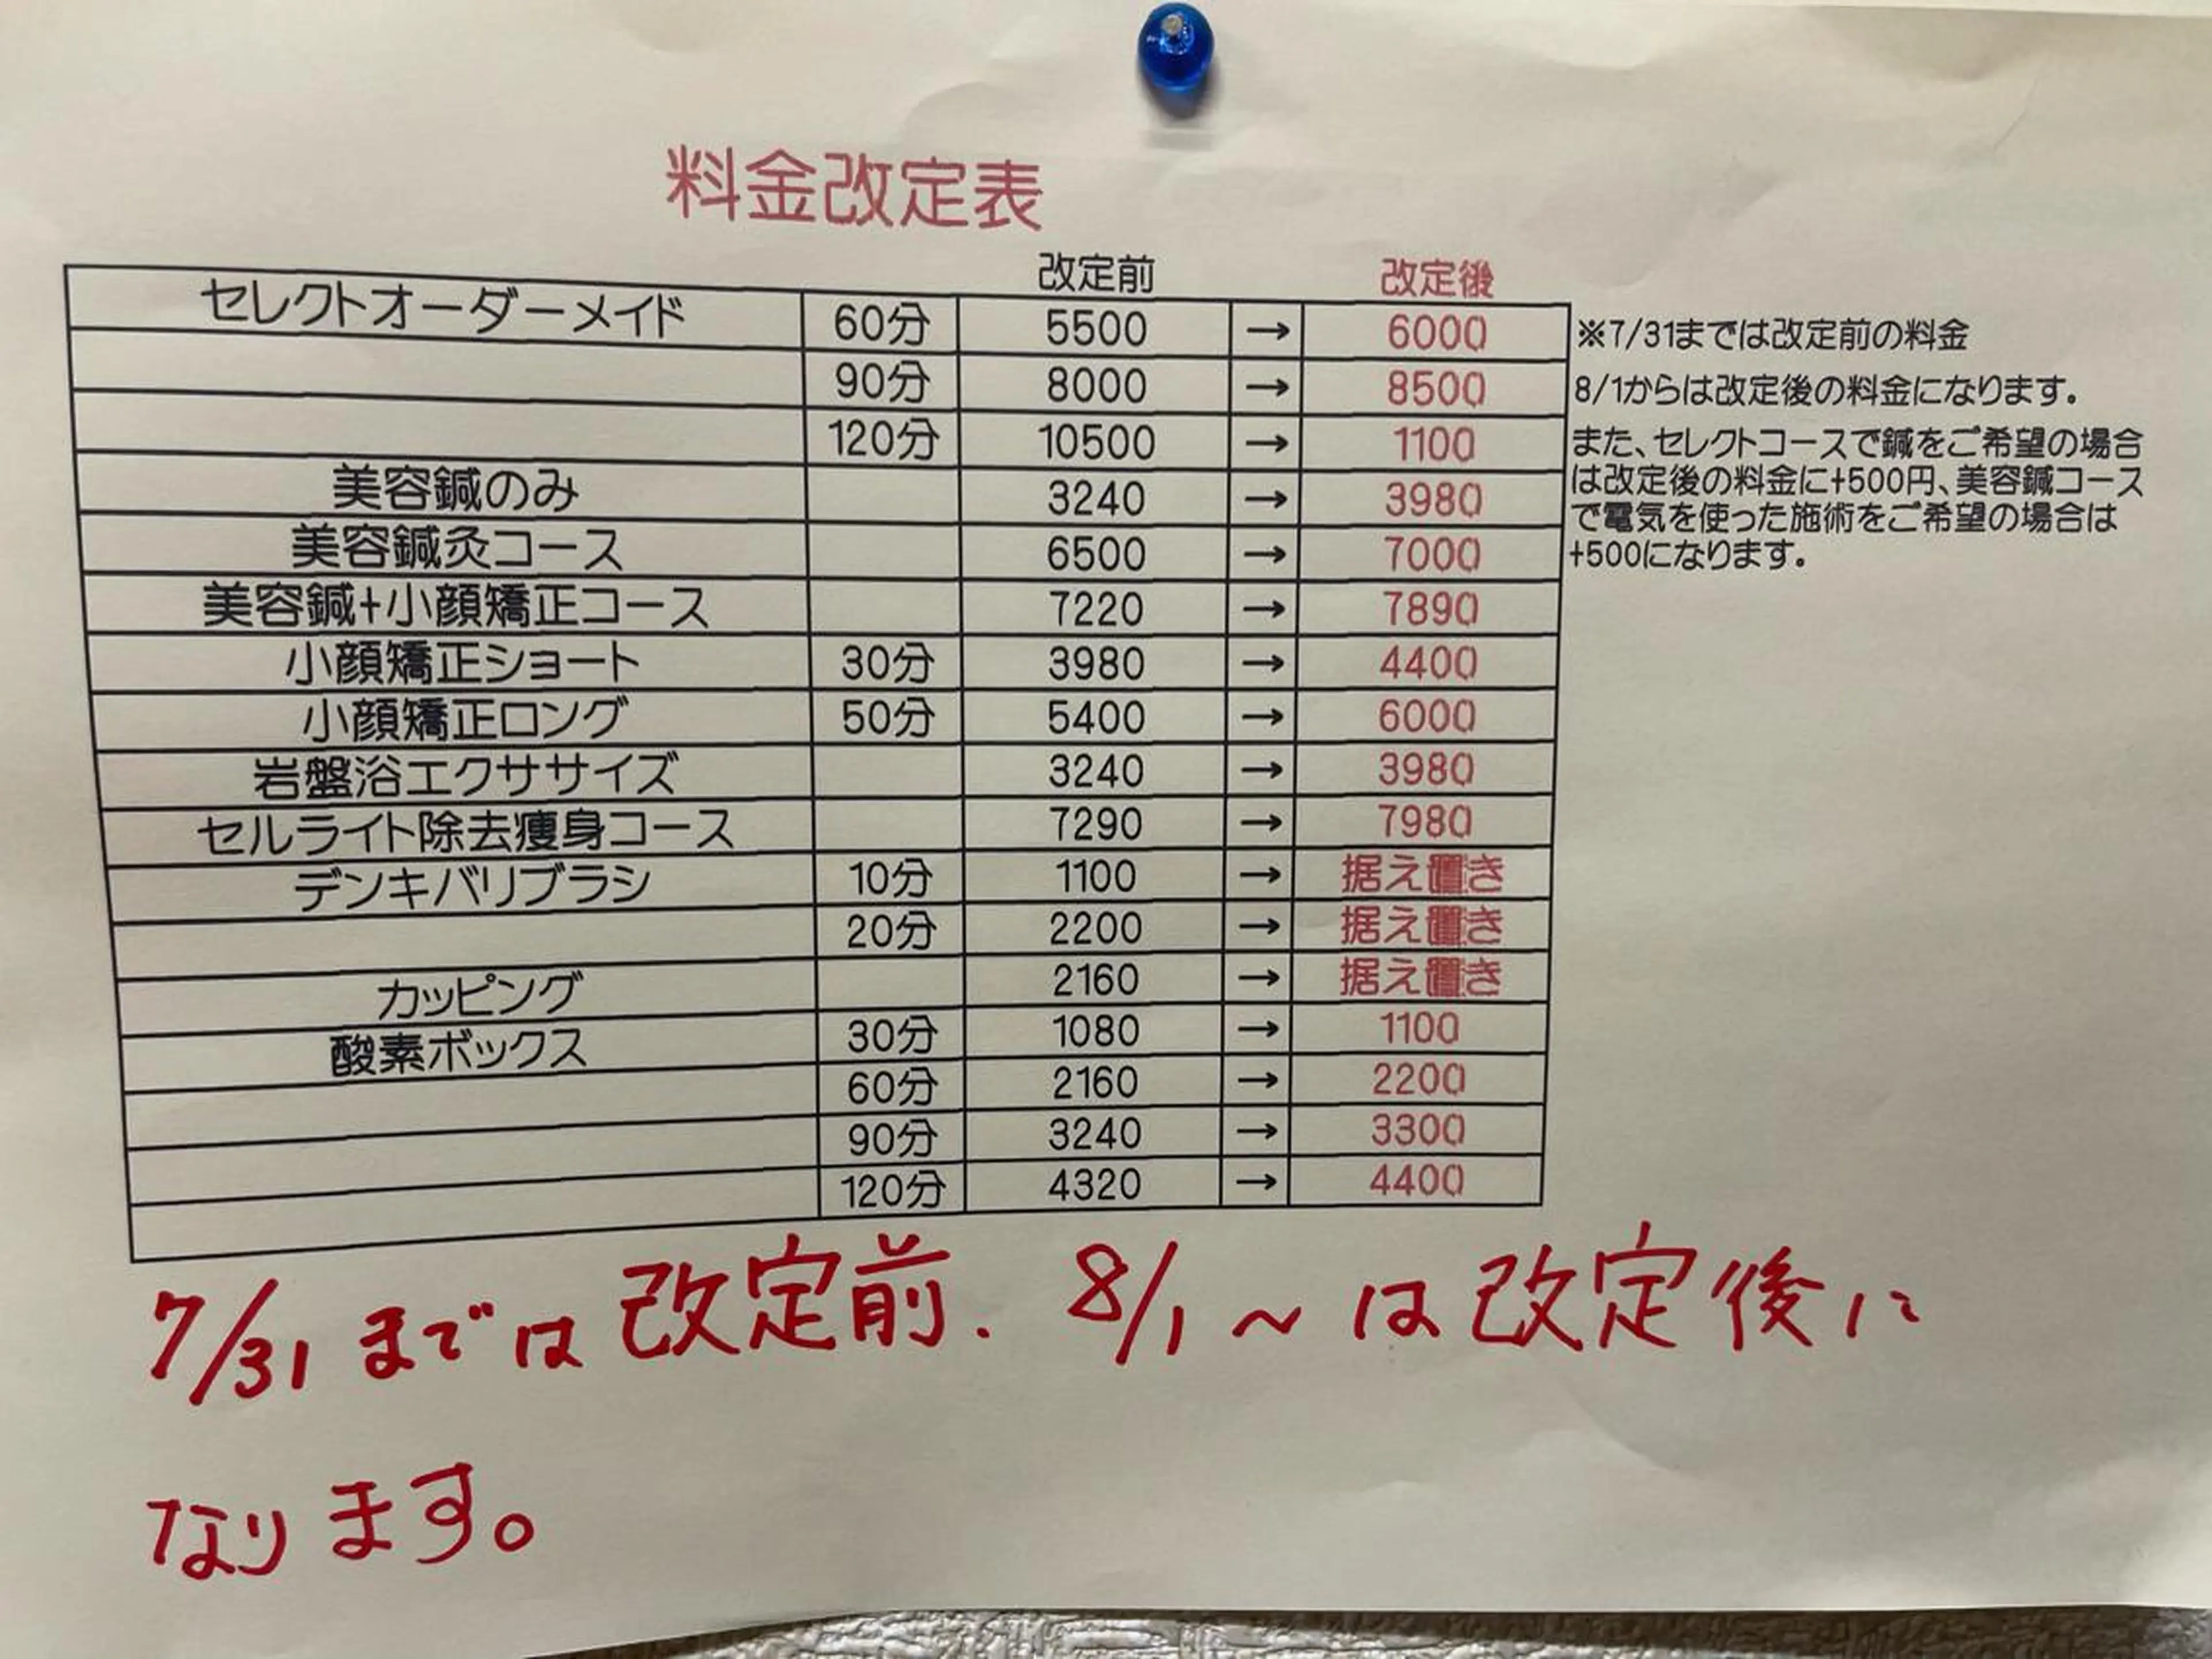 料金改定表
改定前 改定後
セレクトオーダーメイド 60分 5500 → 6000
90分 8000 → 8500
120分 10500 → 1100
美容鍼のみ 3240 → 3980
美容鍼灸コース 6500 → 7000
美容鍼+小顔矯正コース 7220 → 7890
小顔矯正ショート 30分 3980 → 4400
小顔矯正ロング 50分 5400 → 6000
岩盤浴エクササイズ 3240 → 3980
セルライト除去痩身コース 7290 → 7980
デンキバリブラシ 10分 1100 → 据え置き
20分 2200 → 据え置き
カッピング 2160 → 据え置き
酸素ボックス 30分 1080 → 1100
60分 2160 → 2200
90分 3240 → 3300
120分 4320 → 4400
※7/31までは改定前の料金
8/1からは改定後の料金になります。
また、セレクトコースで鍼をご希望の場合
は改定後の料金に+500円、美容鍼コース
で電気を使った施術をご希望の場合は
+500になります。
7/31までは改定前. 8/1~は改定後に
なります。